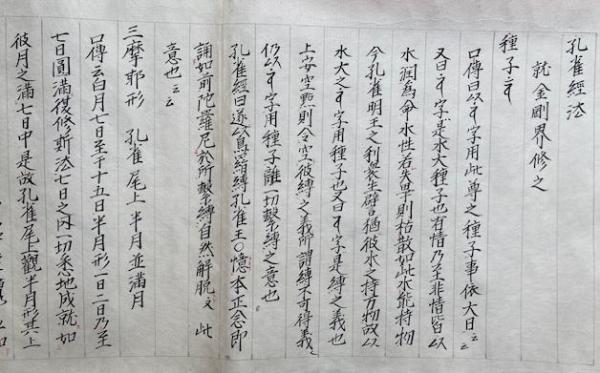 孔雀經法
就金剛界修之
種子
口傳曰以字用此尊之種子事依大日云云
又曰字是水大種子也有情乃至非情皆以
水潤為命水性若失畢則枯散如此水能持物
今孔雀明王之利衆生譬猶彼水之持万物故以
水大之字用種子也又曰字是縛之義也
上安空點則令空彼縛之義所謂縛不可得義
仍以字用種子離一切繫縛之意也
孔雀經曰遂以鳥羂縛孔雀王〇憶本正念即
誦如前陀羅尼於所繫縛自然解脱文 此
意也云云
三摩耶形 孔雀尾上半月並滿月
口傳云白月七日至于十五日半月形一日二日乃至
七日圓滿復修斯法七日之内一切悉地成就如
彼月之滿七日中是故孔雀尾上觀半月形其上